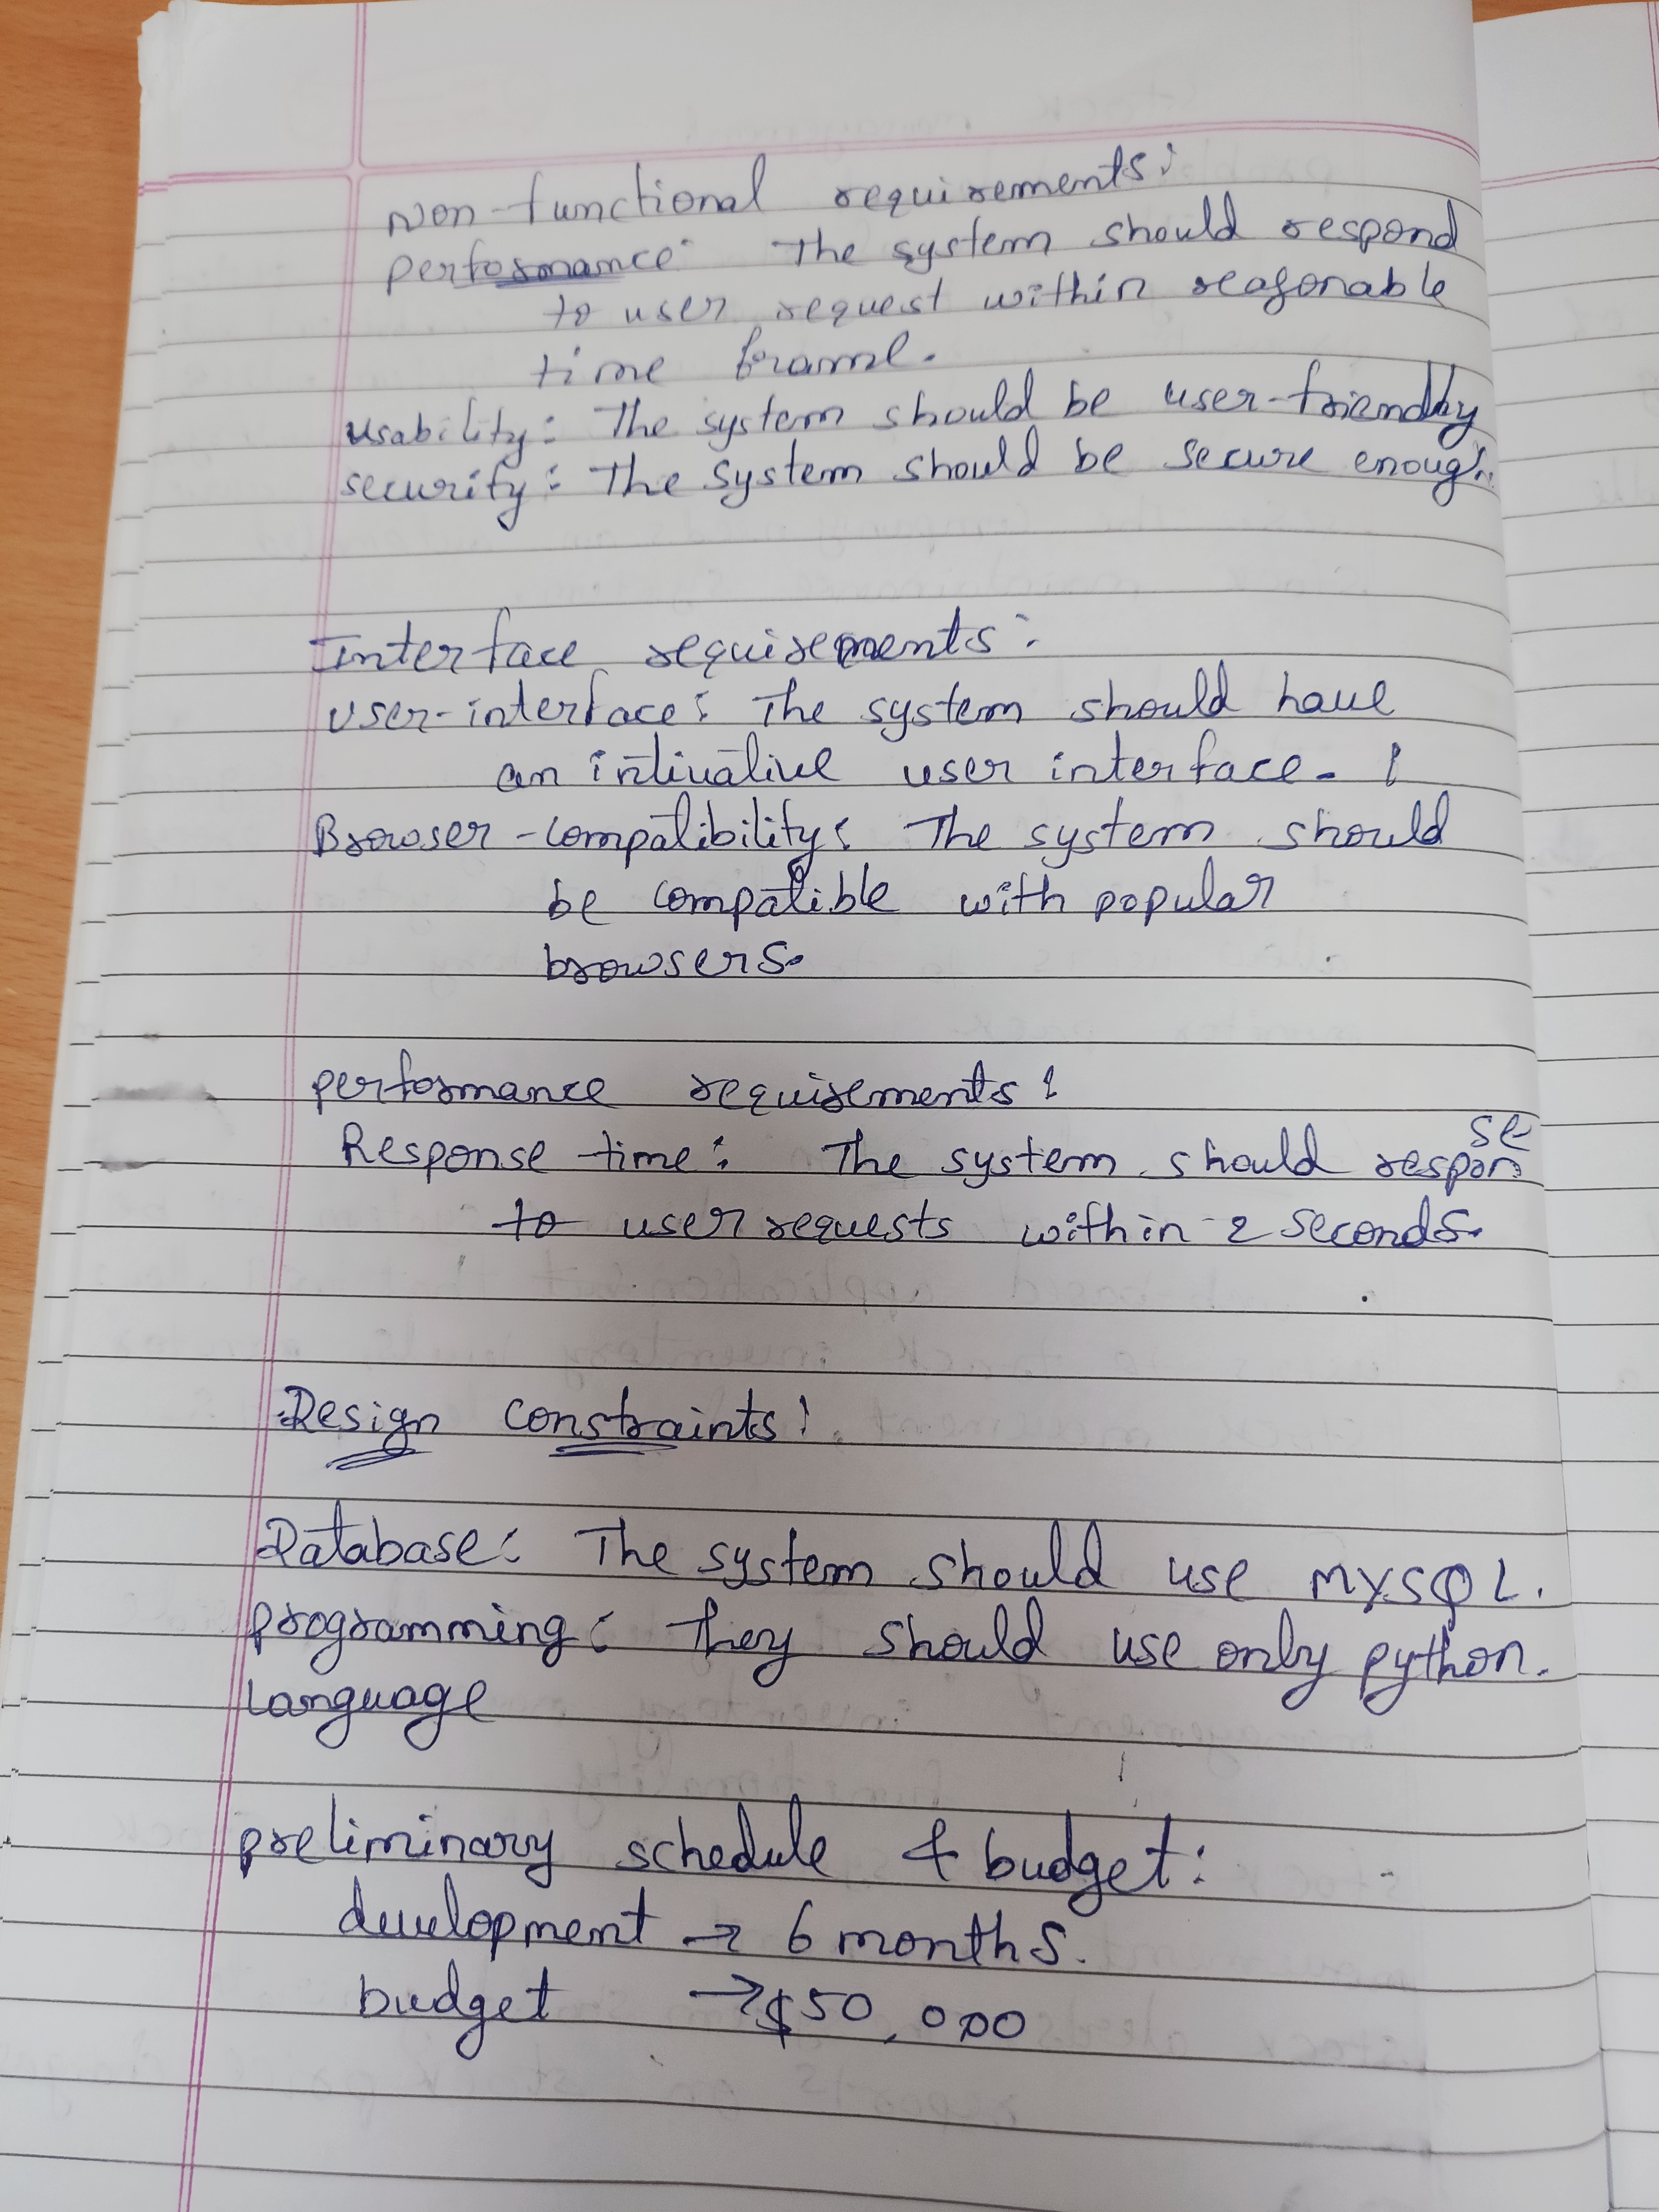 Non-functional requirements:
performance: The system should respond
to user request within reasonable
time frame.
Usability: The system should be user-friendly
security: The system should be secure enough.
Interface requirements:
User-interface: The system should have
an intivative user interface.
Browser-compatibility: The system should
be compatible with popular
browsers.
performance requirements:
se
Response time: The system should respon
to user requests within 2 seconds.
Design constraints:
Database: The system should use MYSQL.
programming: They should use only python.
Language
preliminary schedule & budget:
development → 6 months.
budget → $50,000